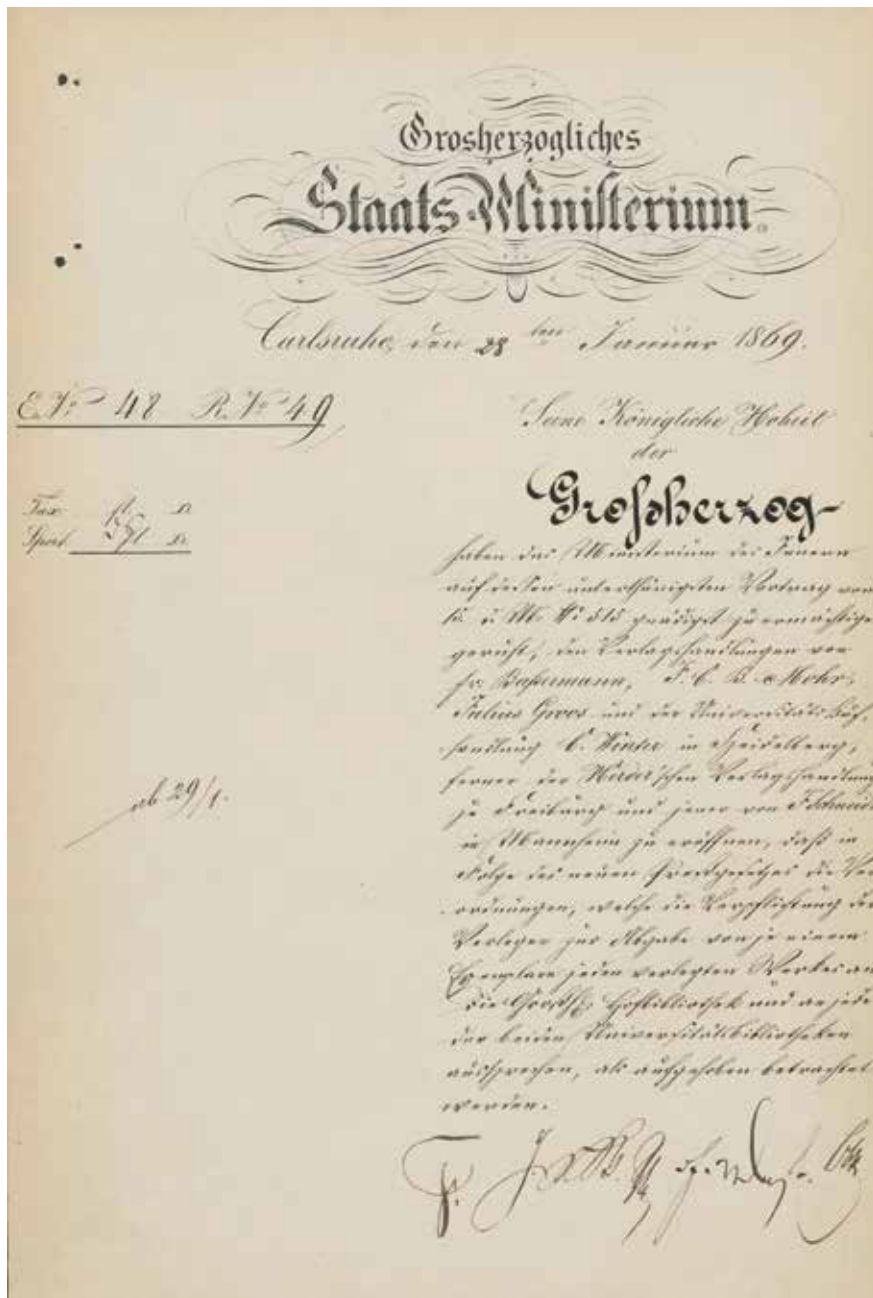 Grosherzogliches
Staats-Ministerium.
Carlsruhe, den 28ten Januar 1869.
E. No 48 R. No 49
Seine Königliche Hoheit
der
Großherzog
Tax fl. kr.
Sport. fl. kr.
haben das Ministerium des Innern
auf dessen unterthänigsten Vortrag vom
gnädigst zu ermächtigen
geruht, den Verlagshandlungen von
Fr. Bassermann, J. C. B. Mohr,
Julius Groos und der Universitäts Buch-
handlung C. Winter in Heidelberg,
ferner der Herder'schen Verlagshandlung
zu Freiburg und jener von J. Schneider
in Mannheim zu eröffnen, daß in
Folge des neuen Preßgesetzes die Ver-
ordnungen, welche die Verpflichtung der
Verleger zur Abgabe von je einem
Exemplare jeden verlegten Werkes an
die Großh. Hofbibliothek und an jede
der beiden Universitätsbibliotheken
aussprechen, als aufgehoben betrachtet
werden.
ab 29/1.